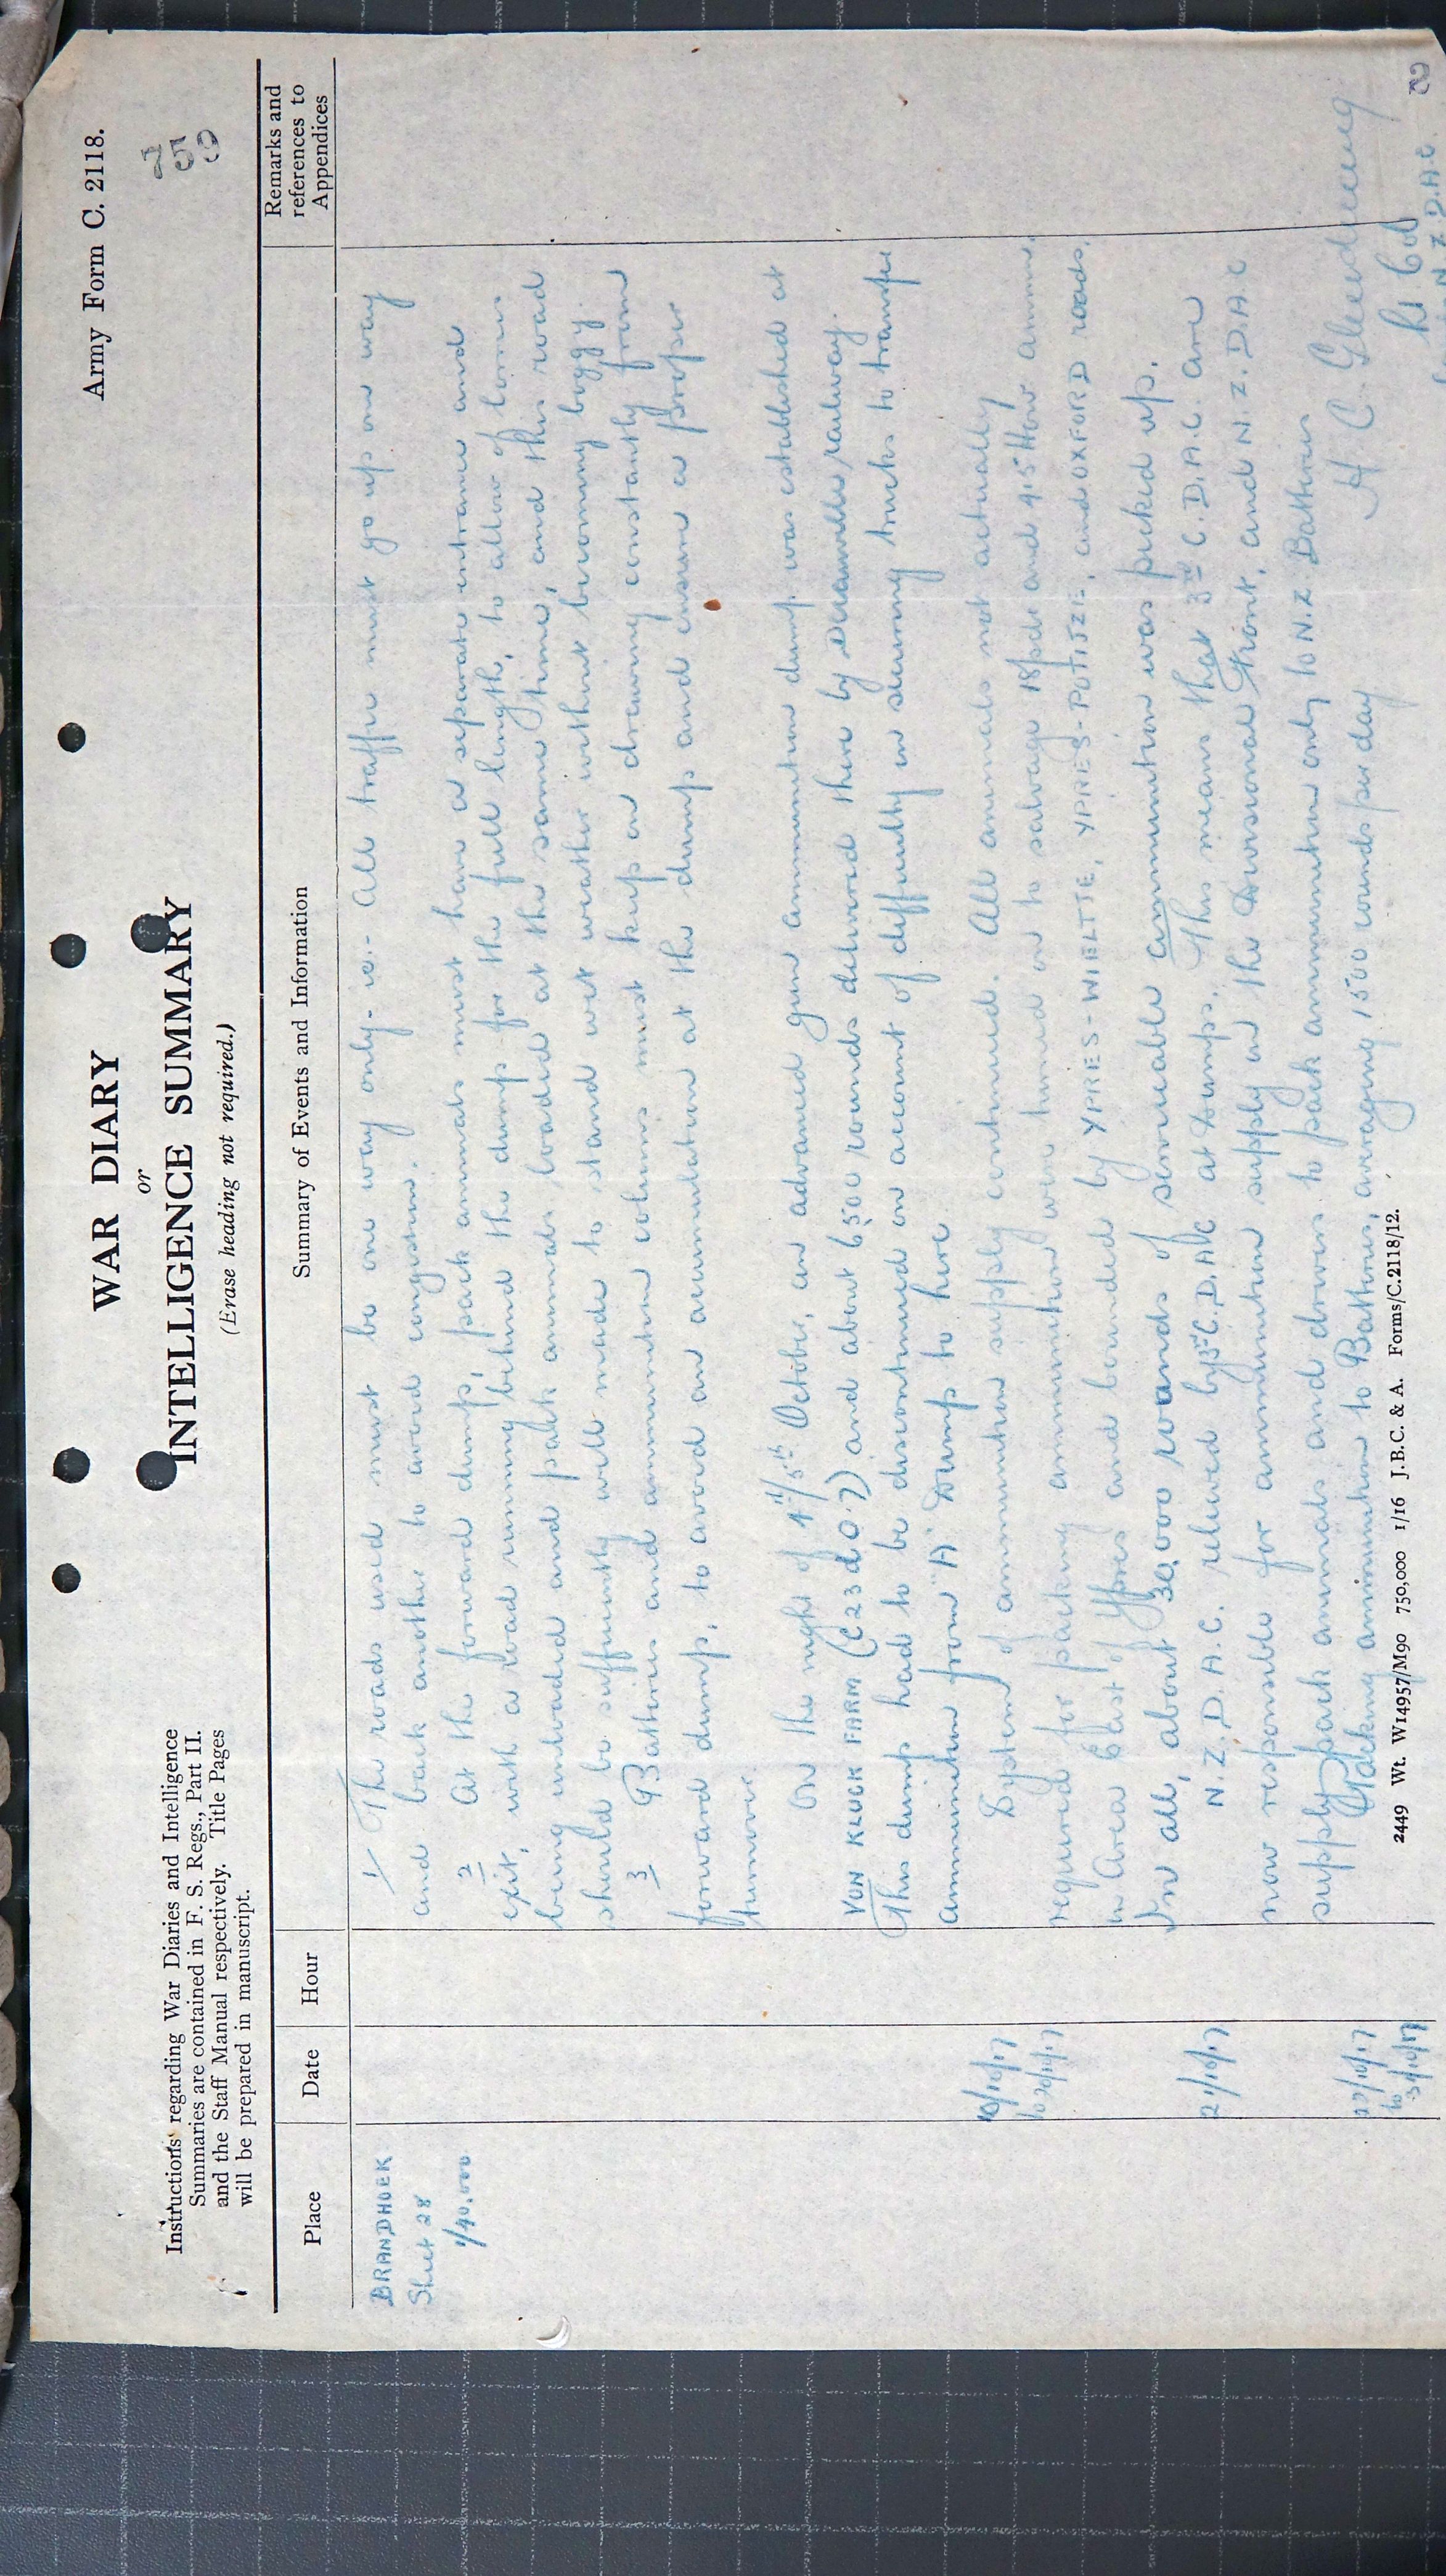 Army Form C. 2118.
WAR DIARY
or
INTELLIGENCE SUMMARY
(Erase heading not required.)
759
Instructions regarding War Diaries and Intelligence
Summaries are contained in F. S. Regs., Part II.
and the Staff Manual respectively. Title Pages
will be prepared in manuscript.
Place
Date
Hour
Summary of Events and Information
Remarks and
references to
Appendices
BRANDHOEK
Sheet 28
1/40,000
1/ The roads used must be one way only - ie:- All traffic must go up one way
and back another to avoid congestion.
2 At the forward dump, pack animals must have a separate entrance and
exit, with a road running behind the dump for the full length, to allow of lorries
being unloaded and pack animals loaded at the same time, and this road
should be sufficiently well made to stand wet weather without becoming boggy.
3 Batteries and ammunition columns must keep on drawing constantly from
forward dump, to avoid an accumulation at the dump and ensure a proper
turnover.
On the night of 4th/5th October, an advanced gun ammunition dump was established at
VON KLUCK FARM (C 23 d 0.7) and about 6,500 rounds delivered there by Decauville railway.
This dump had to be discontinued on account of difficulty in securing trucks to transfer
ammunition from "A" Dump to here
10/10/17
to 20/10/17
System of ammunition supply continued. All animals not actually
required for packing ammunition were turned on to salvage 18pdr and 4.5 How ammn.
in Area East of Ypres and bounded by YPRES-WIELTJE, YPRES-POTIJZE, and OXFORD roads.
In all, about 30,000 rounds of serviceable ammunition was picked up.
21/10/17
N.Z.D.A.C. relieved by 3rd C.D.A.C at Dumps. This means that 3rd C.D.A.C. are
now responsible for ammunition supply on the Divisional Front, and N.Z.D.A.C
supply pack animals and drivers to pack ammunition only to N.Z. Batteries
22/10/17
to 31/10/17
Packing ammunition to Batteries, averaging 1500 rounds per day
H C Glendining
Lt Col
N.Z.D.A.C.
2449 Wt. W14957/M90 750,000 1/16 J.B.C. & A. Forms/C.2118/12.